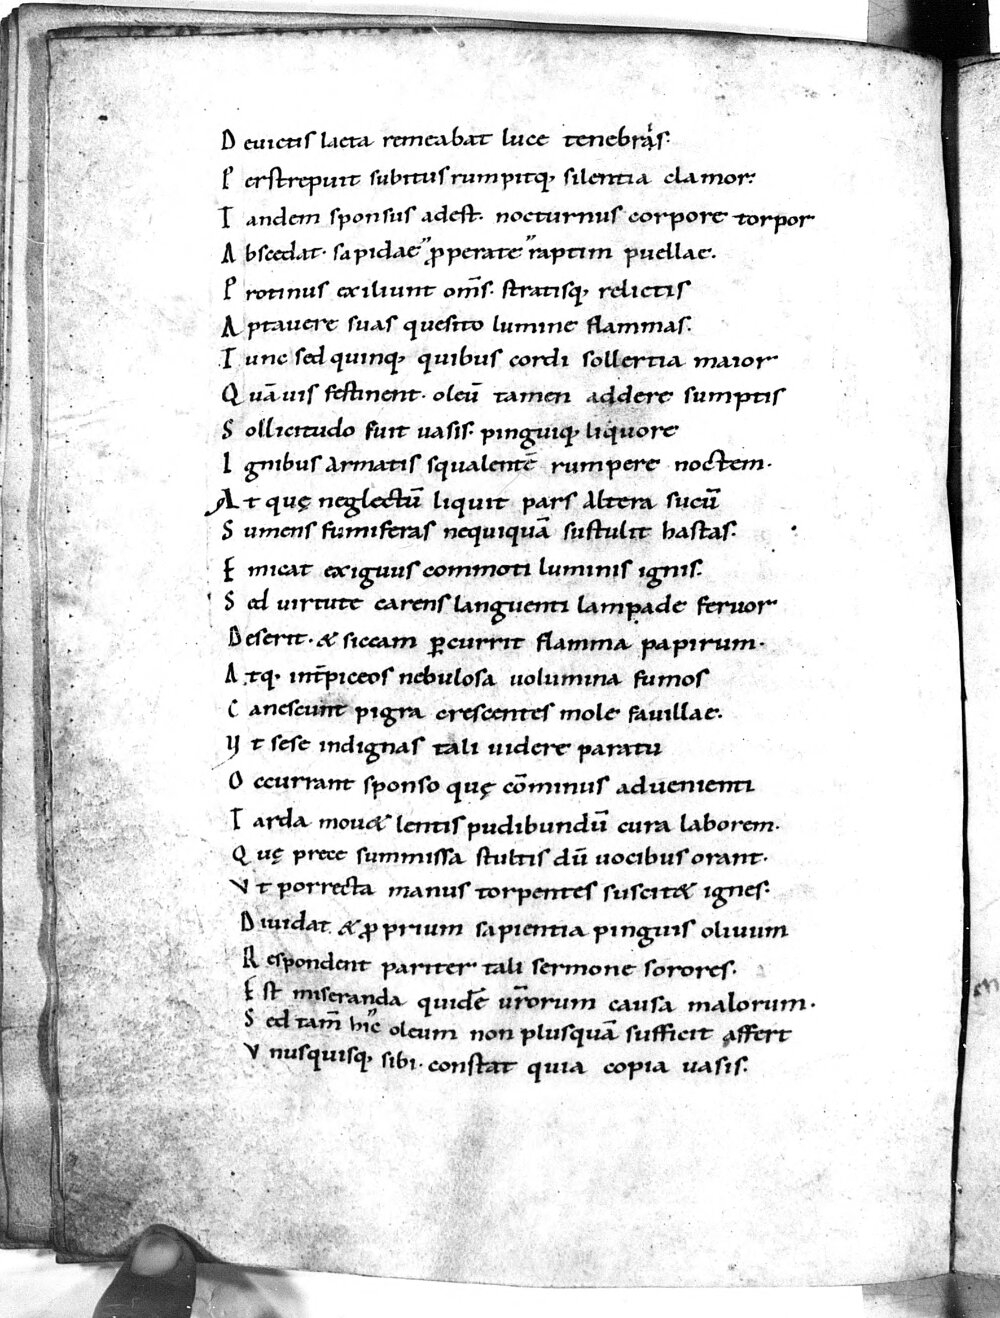 Deuictis laeta remeabat luce tenebris.
Perstrepuit subitus rumpitq; silentia clamor:
Tandem sponsus adest. nocturnus corpore torpor
Abscedat. sapidae ꝓperate raptim puellae.
Protinus exiliunt om̄s. stratisq; relictis
Aptauere suas quesito lumine flammas.
Tunc sed quinq; quibus cordi sollertia maior
Quāuis festinent. oleū tamen addere sumptis
Sollicitudo fuit uasis. pinguiq; liquore
Ignibus armatis squalentē rumpere noctem.
At quę neglectū liquit pars altera sucū
Sumens fumiferas nequiquā sustulit hastas.
Emicat exiguus commoti luminis ignis.
Sed uirtute carens languenti lampade feruor
Deserit. & siccam ꝑcurrit flamma papirum.
Atq; int̄ piceos nebulosa uolumina fumos
Canescunt pigra crescentes mole fauillae.
Vt sese indignas tali uidere paratu
Occurrant sponso quę cōminus aduenienti
Tarda mou& lentis pudibundū cura laborem.
Quę prece summissa stultis dū uocibus orant.
Vt porrecta manus torpentes suscit& ignes:
Diuidat & ꝓprium sapientia pinguis oliuum
Respondent pariter tali sermone sorores.
Est miseranda quidē ur̄orum causa malorum.
Sed tam̄ hic oleum non plusquā sufficit affert
Vnusquisq; sibi. constat quia copia uasis.